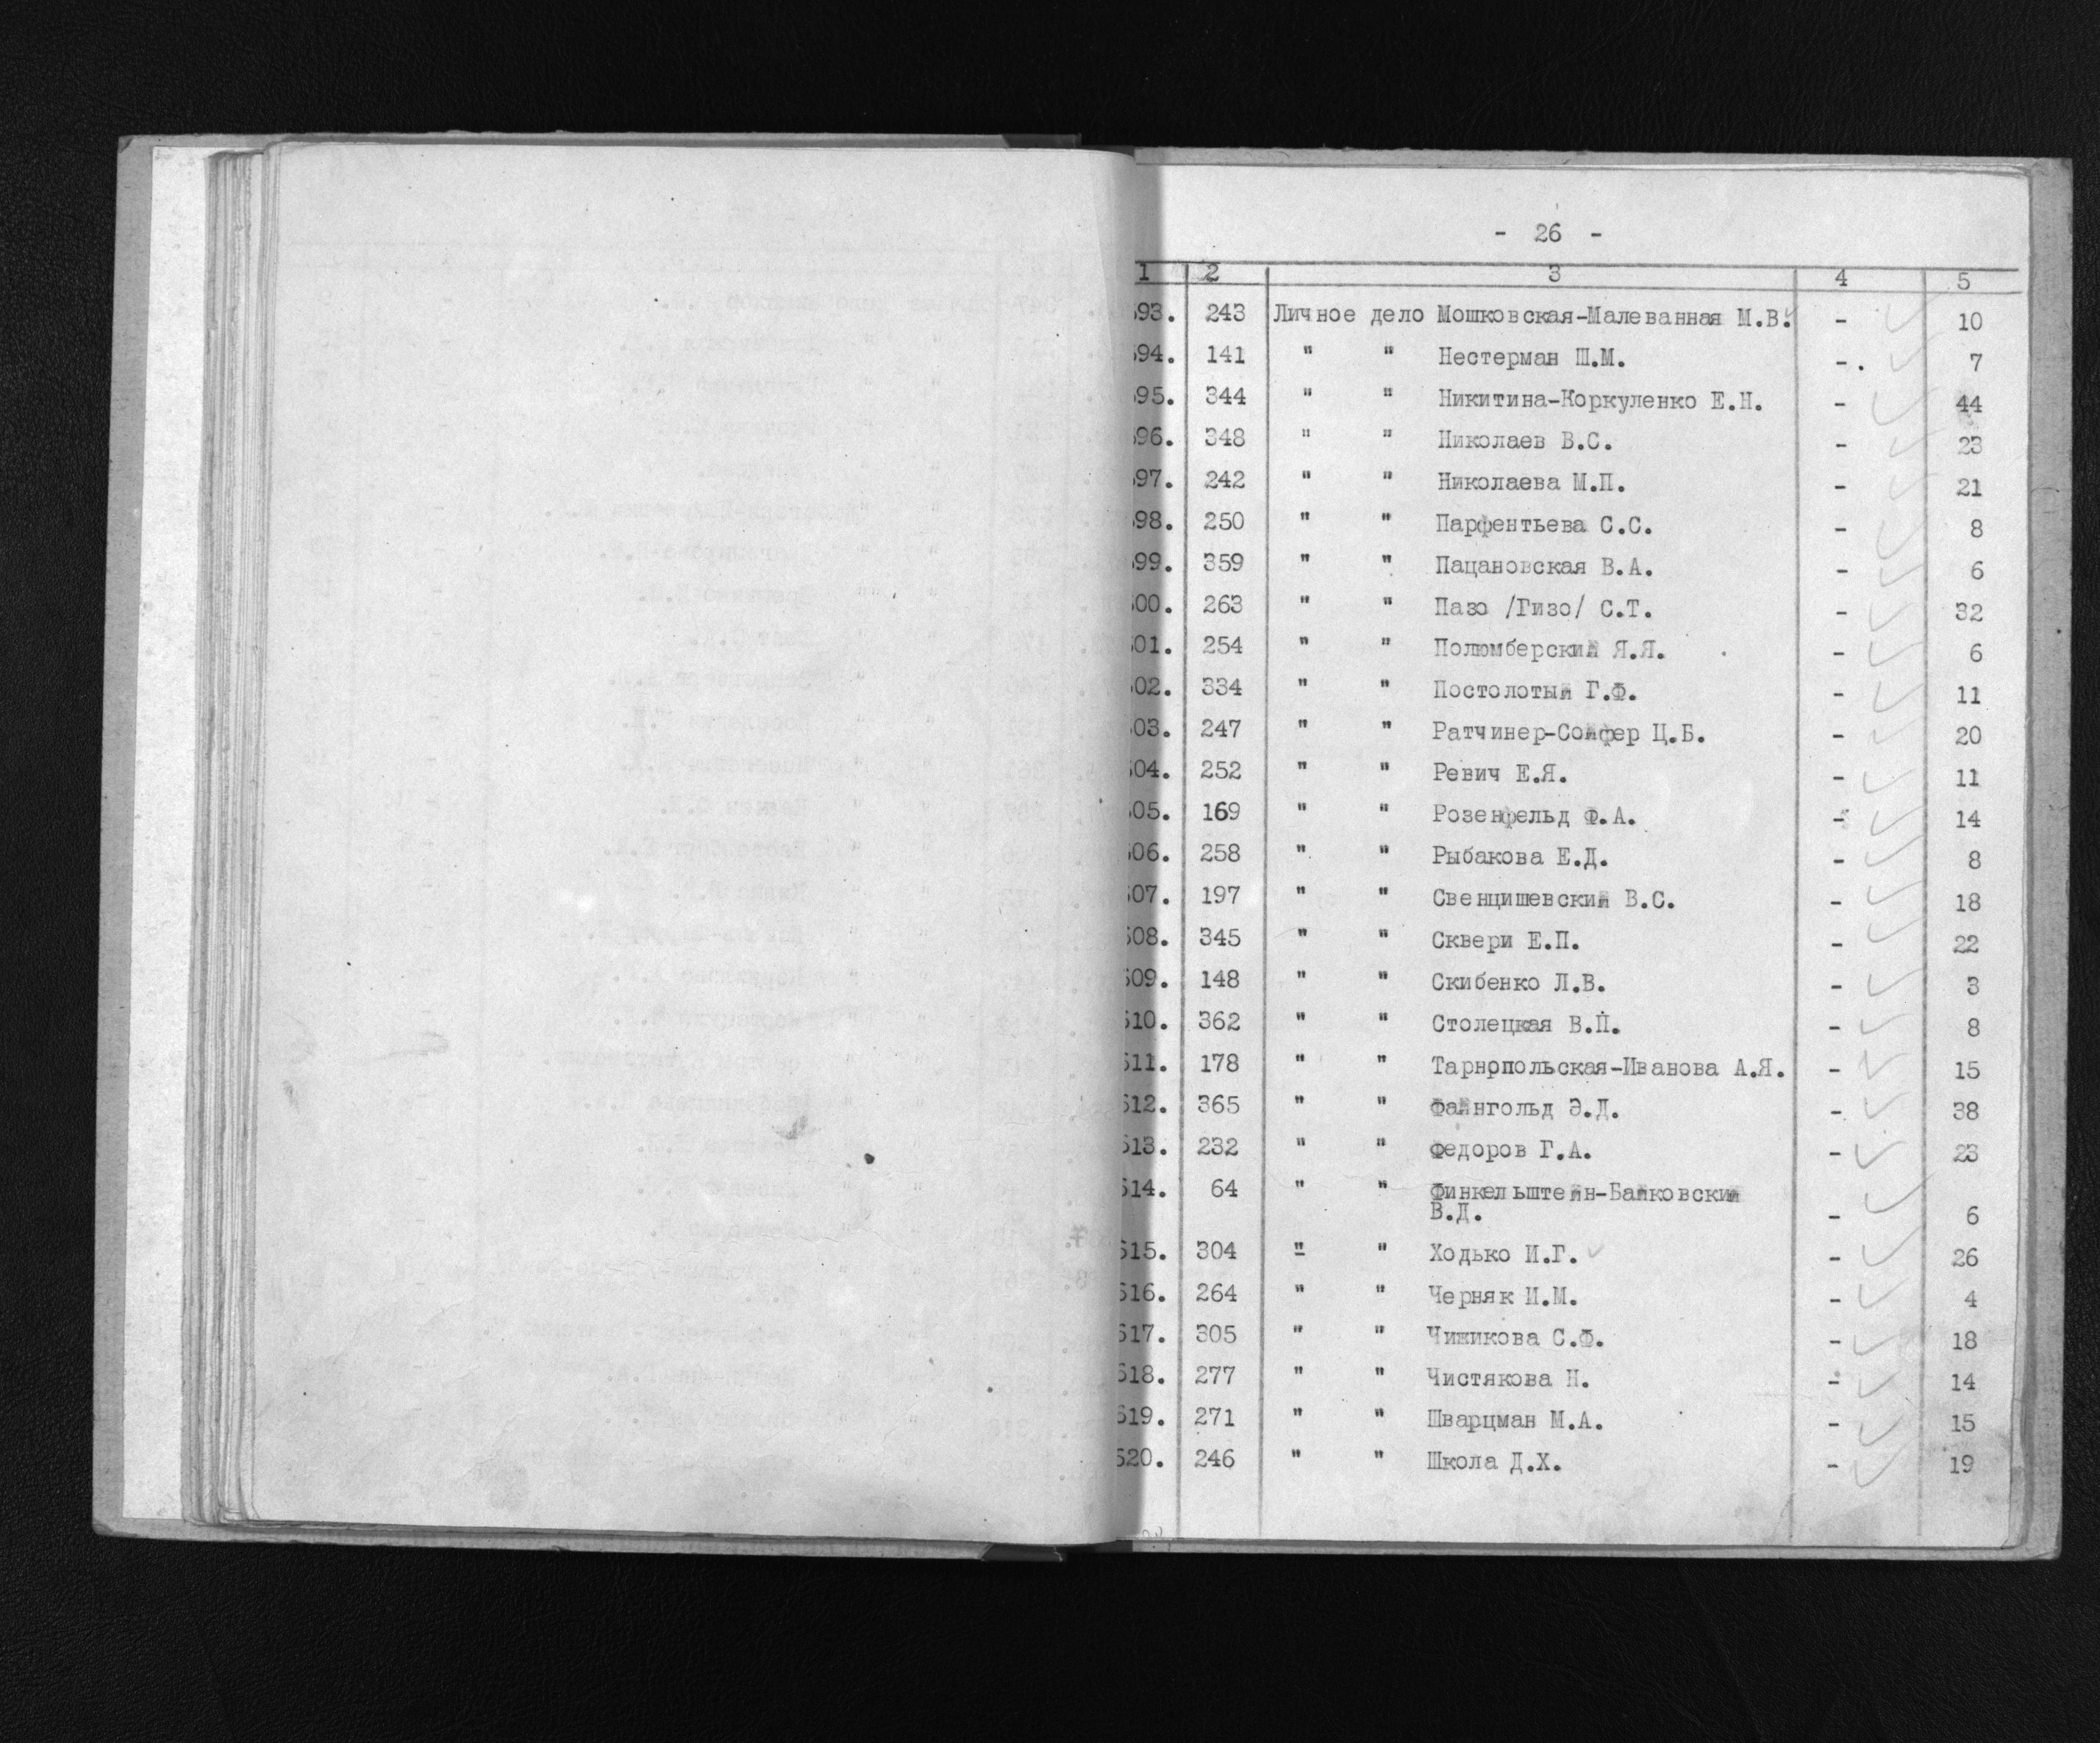 - 26 -
1 2 3 4 5
93. 243 Личное дело Мошковская-Малеванная М.В. - 10
94. 141 " " Нестерман Ш.М. - . 7
95. 344 " " Никитина-Коркуленко Е.Н. - 44
96. 348 " " Николаев В.С. - 23
97. 242 " " Николаева М.П. - 21
98. 250 " " Парфентьева С.С. - 8
99. 359 " " Пацановская В.А. - 6
00. 263 " " Пазо /Гизо/ С.Т. - 32
01. 254 " " Полюмберский Я.Я. - 6
02. 334 " " Постолотый Г.Ф. - 11
03. 247 " " Ратчинер-Сойфер Ц.Б. - 20
04. 252 " " Ревич Е.Я. - 11
05. 169 " " Розенфельд Ф.А. - 14
06. 258 " " Рыбакова Е.Д. - 8
07. 197 " " Свенцишевский В.С. - 18
608. 345 " " Сквери Е.П. - 22
609. 148 " " Скибенко Л.В. - 3
610. 362 " " Столецкая В.П. - 8
611. 178 " " Тарнопольская-Иванова А.Я. - 15
612. 365 " " Файнгольд Э.Д. - 38
613. 232 " " Федоров Г.А. - 23
614. 64 " " Финкельштейн-Байковский
В.Д. - 6
615. 304 " " Ходько И.Г. - 26
616. 264 " " Черняк И.М. - 4
617. 305 " " Чижикова С.Ф. - 18
618. 277 " " Чистякова Н. - 14
619. 271 " " Шварцман М.А. - 15
620. 246 " " Школа Д.Х. - 19